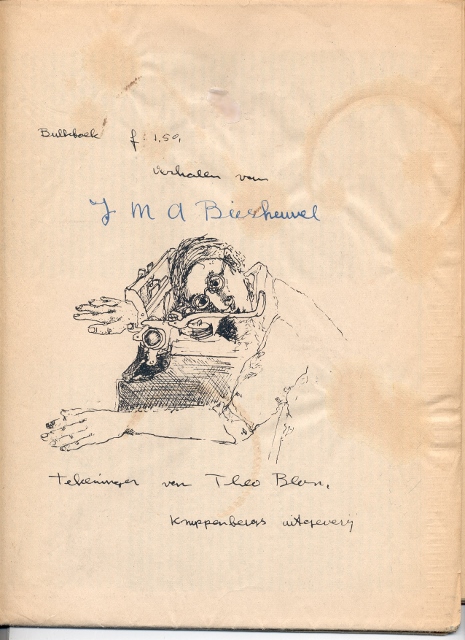 Bulkboek f: 1.50,
verhalen van
J M A Biesheuvel
tekeningen van Theo Blom.
Knippenbergs uitgeverij